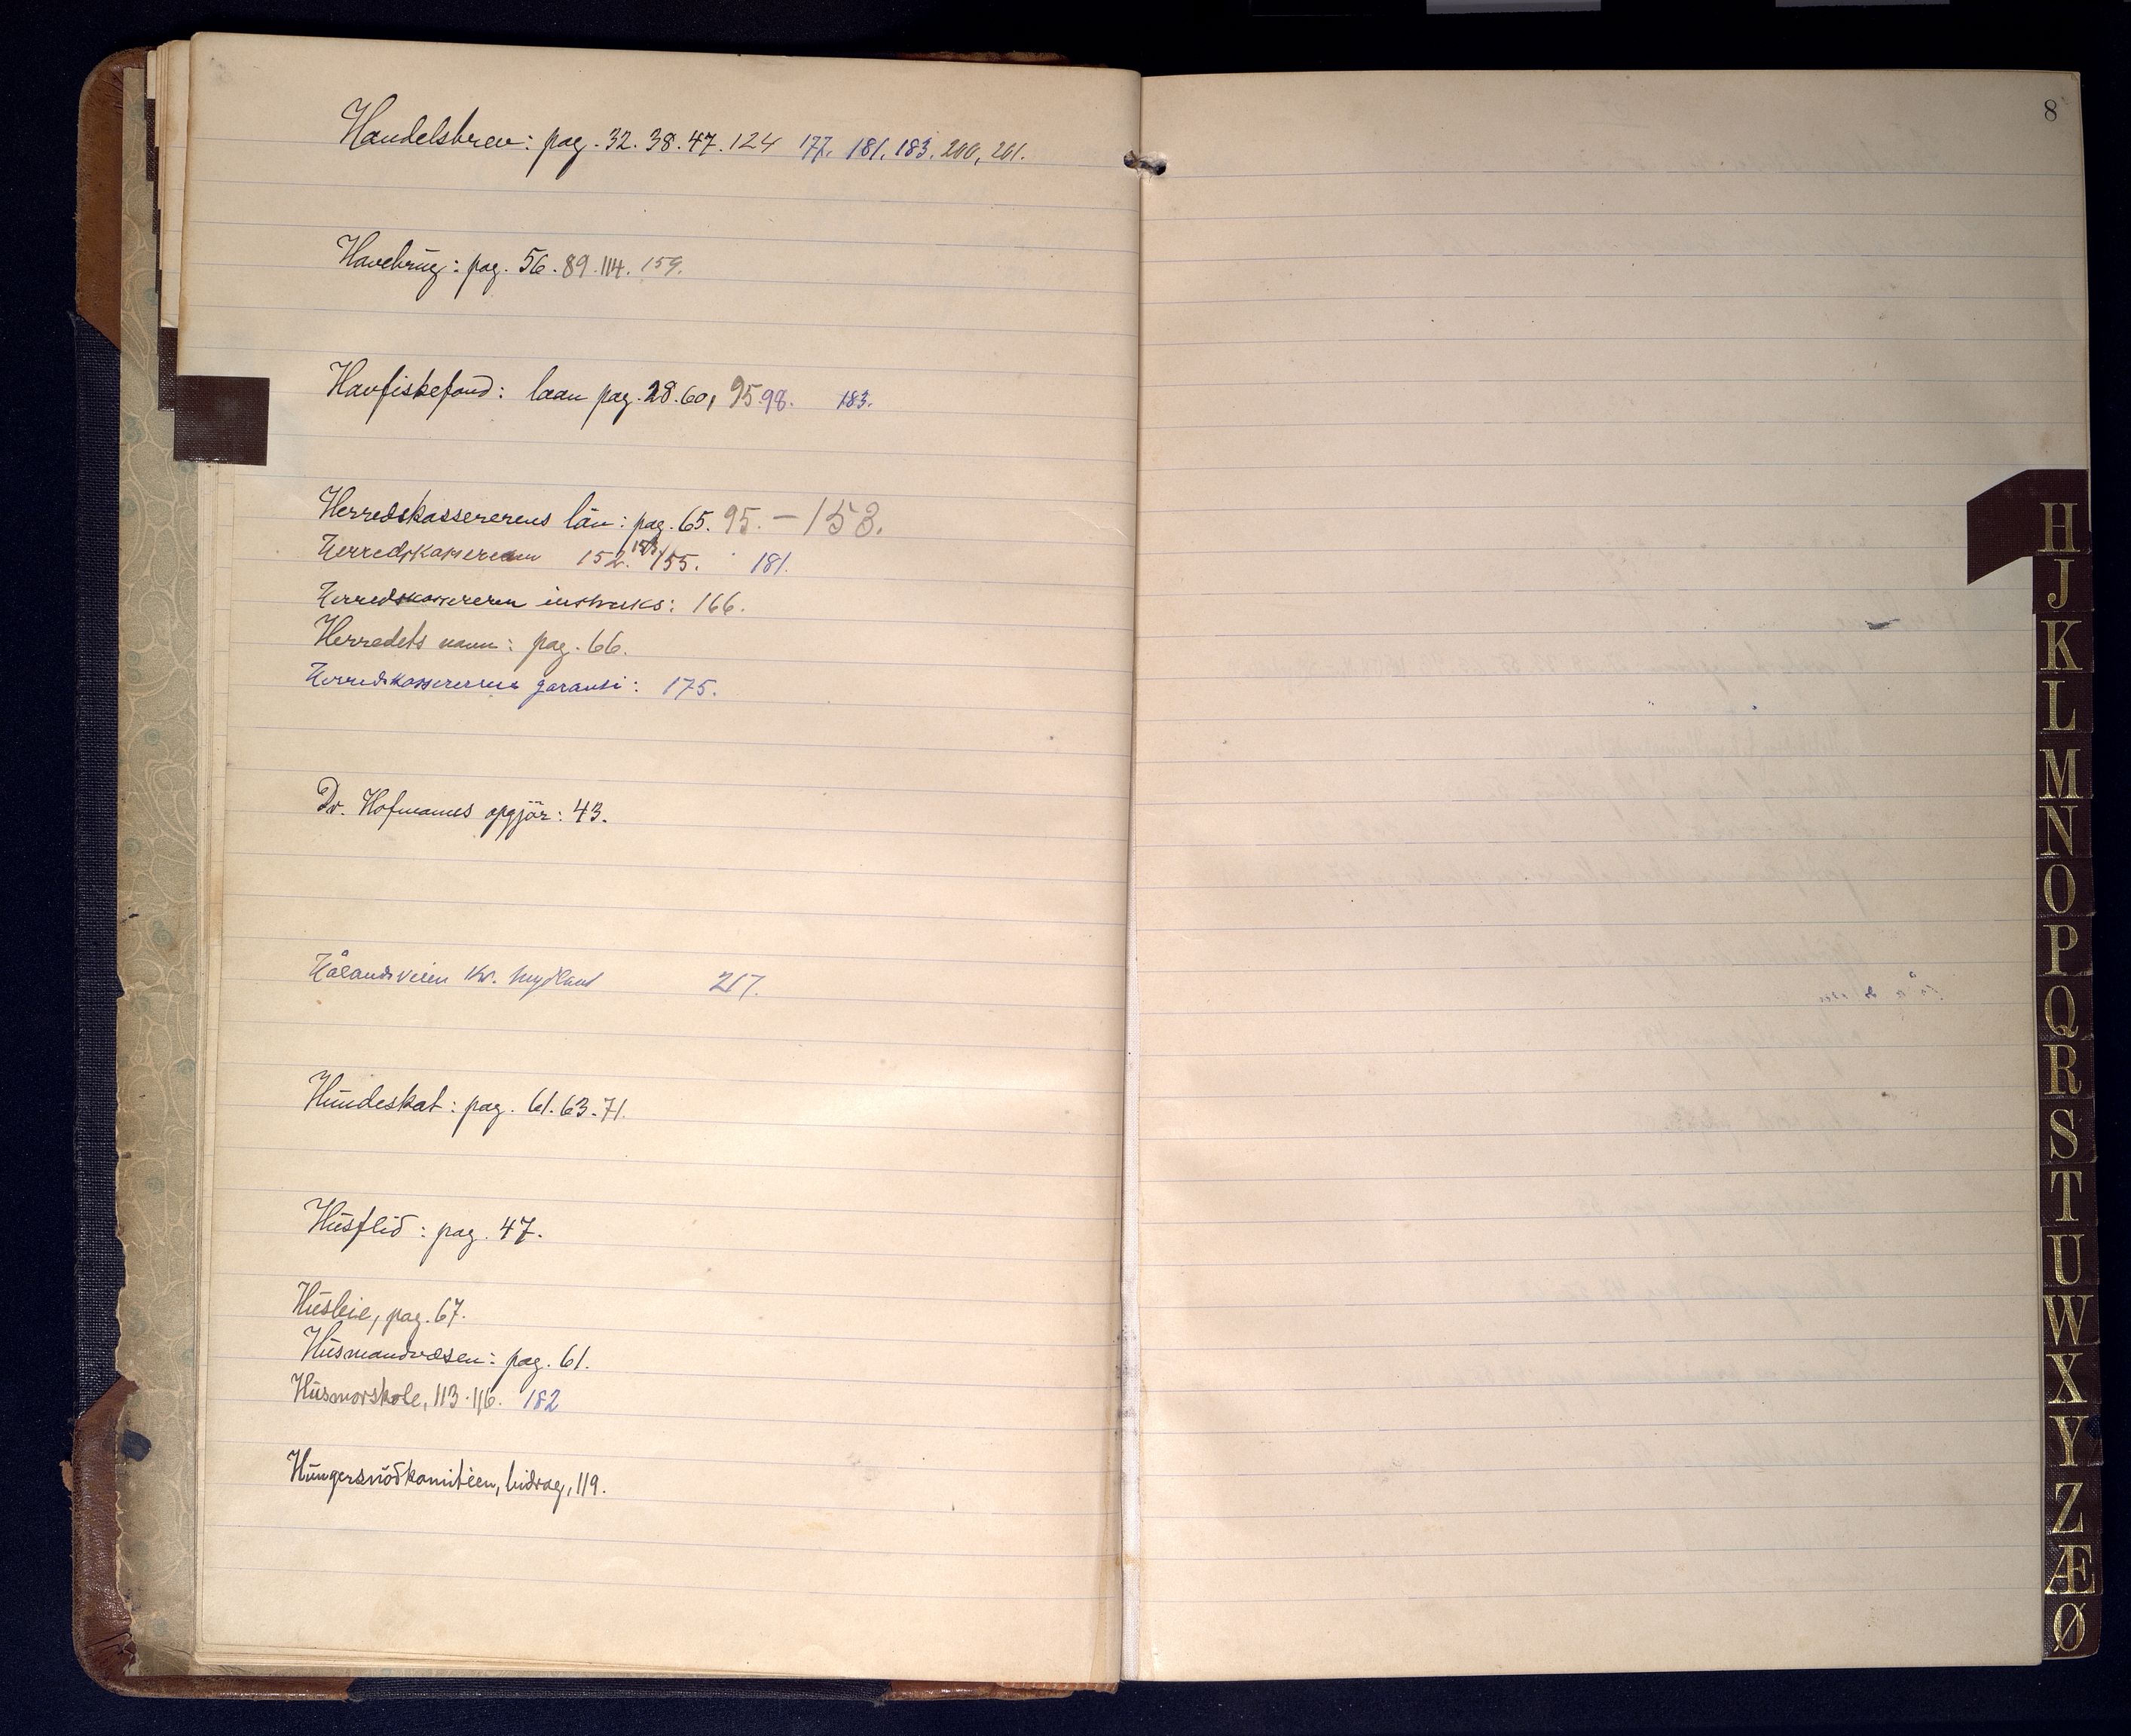 Handelsbrev: pag. 32. 38. 47. 124 177. 181. 183. 200, 201.
Havebrug: pag. 56. 89. 114. 159.
Havfiskefond: laan pag. 28. 60, 95. 98. 183.
Herredskassererens lån: pag. 65. 95. - 153.
Herredskassereren 152. 153/155. 181.
Herredskassereren instruks: 166.
Herredets navn: pag. 66.
Herredskassererens garanti: 175.
Dr. Hofmanns opgjör: 43.
Hålandsveien Kr. Mydland 217.
Hundeskat: pag. 61. 63. 71.
Husflid: pag. 47.
Husleie, pag. 67.
Husmandvæsen: pag. 61.
Husmorskole, 113. 116. 182
Hungersnödkomitéen, bidrag, 119.
8
H
J
K
L
M
N
O
P
Q
R
S
T
U
W
X
Y
Z
Æ
Ø